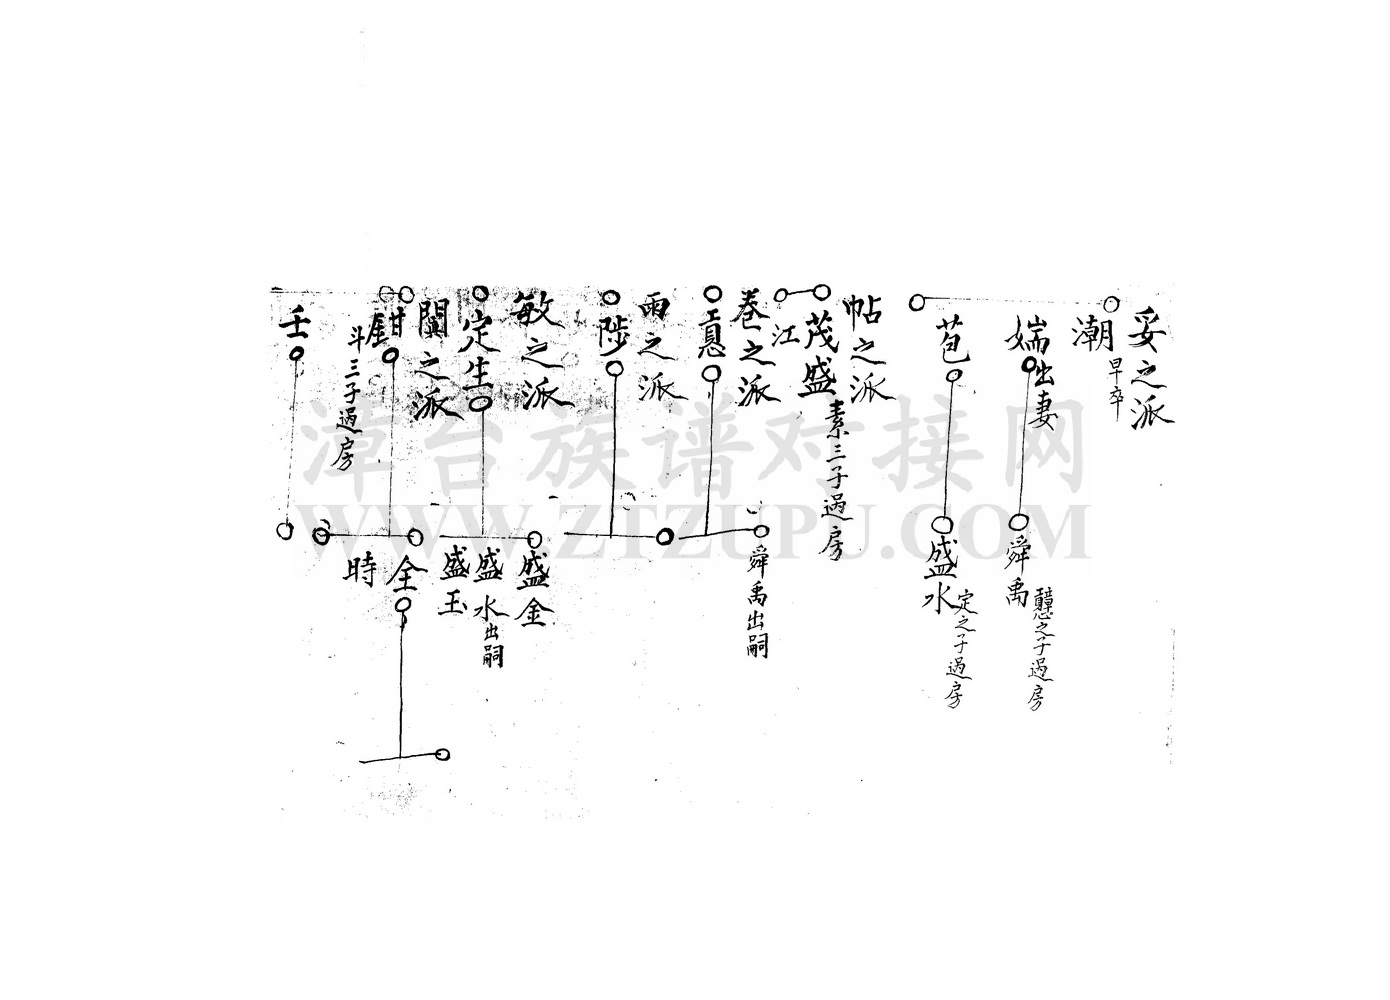 妥之派
潮
早卒
媏出妻
舜禹
之子過房
苞
盛水
定之子過房
帖之派
茂盛
素三子過房
江
卷之派
舜禹出嗣
雨之派
陟
敏之派
定生
盛金
盛水出嗣
盛玉
之派
鉗
斗三子過房
全
時
壬
漳台族谱对接网
WWW.ZTZUPU.COM